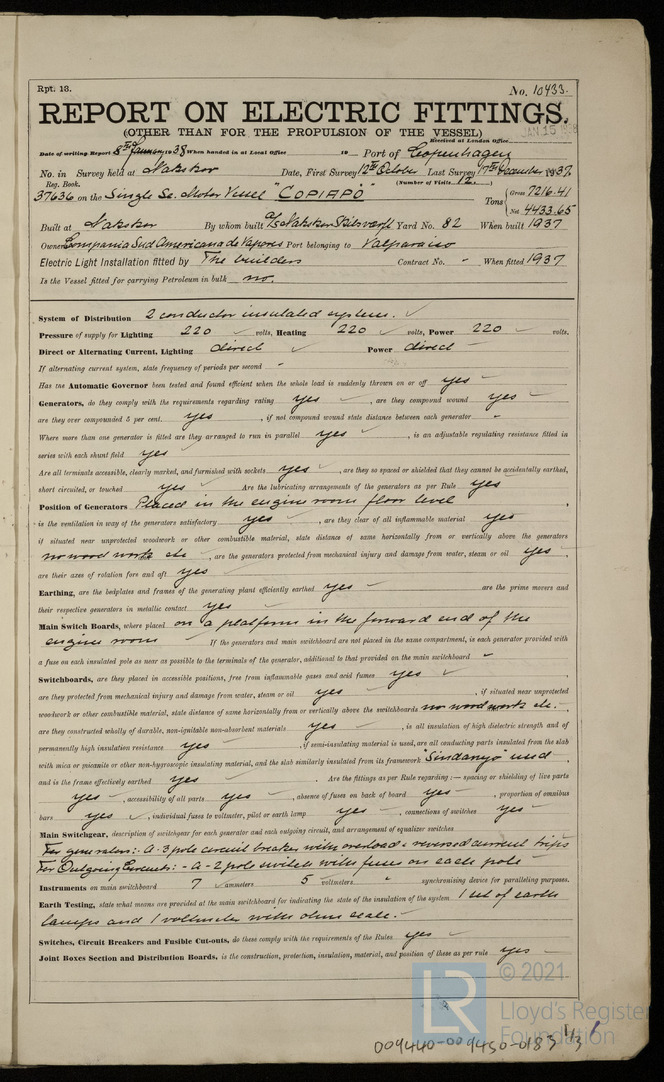 Rpt. 13.
No. 10433.
REPORT ON ELECTRIC FITTINGS.
(OTHER THAN FOR THE PROPULSION OF THE VESSEL)
Received at London Office JAN 15 1938
Date of writing Report 8th January 1938 When handed in at Local Office 19 Port of Copenhagen
No. in Survey held at Nakskov Date, First Survey 12th October Last Survey 17th December 1937
Reg. Book. (Number of Visits 12.)
37636 on the Single Sc. Motor Vessel "COPIAPÓ" Tons { Gross 7216.41
Net 4433.65
Built at Nakskov By whom built A/S Nakskov Skibsværft Yard No. 82 When built 1937
Owners Compania Sud Americana de Vapores Port belonging to Valparaiso
Electric Light Installation fitted by The builders Contract No. - When fitted 1937
Is the Vessel fitted for carrying Petroleum in bulk no.
System of Distribution 2 conductor insulated system. ✓
Pressure of supply for Lighting 220 ✓ volts, Heating 220 ✓ volts, Power 220 ✓ volts.
Direct or Alternating Current, Lighting direct ✓ Power direct -
If alternating current system, state frequency of periods per second -
Has the Automatic Governor been tested and found efficient when the whole load is suddenly thrown on or off yes -
Generators, do they comply with the requirements regarding rating yes ✓, are they compound wound yes -
are they over compounded 5 per cent. yes ✓, if not compound wound state distance between each generator -
Where more than one generator is fitted are they arranged to run in parallel yes ✓, is an adjustable regulating resistance fitted in
series with each shunt field yes ✓
Are all terminals accessible, clearly marked, and furnished with sockets yes ✓, are they so spaced or shielded that they cannot be accidentally earthed,
short circuited, or touched yes ✓ Are the lubricating arrangements of the generators as per Rule yes -
Position of Generators Placed in the engine room floor level
is the ventilation in way of the generators satisfactory yes ✓, are they clear of all inflammable material yes -
if situated near unprotected woodwork or other combustible material, state distance of same horizontally from or vertically above the generators
no wood works etc -, are the generators protected from mechanical injury and damage from water, steam or oil yes -,
are their axes of rotation fore and aft yes -
Earthing, are the bedplates and frames of the generating plant efficiently earthed yes - are the prime movers and
their respective generators in metallic contact yes -
Main Switch Boards, where placed on a platform in the forward end of the
engine room - If the generators and main switchboard are not placed in the same compartment, is each generator provided with
a fuse on each insulated pole as near as possible to the terminals of the generator, additional to that provided on the main switchboard -
Switchboards, are they placed in accessible positions, free from inflammable gases and acid fumes yes ✓,
are they protected from mechanical injury and damage from water, steam or oil yes -, if situated near unprotected
woodwork or other combustible material, state distance of same horizontally from or vertically above the switchboards no wood works etc. -,
are they constructed wholly of durable, non-ignitable non-absorbent materials yes -, is all insulation of high dielectric strength and of
permanently high insulation resistance yes -, if semi-insulating material is used, are all conducting parts insulated from the slab
with mica or micanite or other non-hygroscopic insulating material, and the slab similarly insulated from its framework "Sindanyo" used -,
and is the frame effectively earthed yes -. Are the fittings as per Rule regarding:— spacing or shielding of live parts
yes -, accessibility of all parts yes -, absence of fuses on back of board yes -, proportion of omnibus
bars yes ✓, individual fuses to voltmeter, pilot or earth lamp yes -, connections of switches yes -
Main Switchgear, description of switchgear for each generator and each outgoing circuit, and arrangement of equalizer switches
For generators:- A-3 pole circuit breaker with overload & reversed current trips
For Outgoing Circuits:- A-2 pole switch with fuses on each pole -
Instruments on main switchboard 7 ✓ ammeters 5 voltmeters " synchronising device for paralleling purposes.
Earth Testing, state what means are provided at the main switchboard for indicating the state of the insulation of the system 1 set of earth
lamps and 1 voltmeter with ohm scale. -
Switches, Circuit Breakers and Fusible Cut-outs, do these comply with the requirements of the Rules yes -
Joint Boxes Section and Distribution Boards, is the construction, protection, insulation, material, and position of these as per rule yes -
LR
© 2021
Lloyd's Register
Foundation
009440-009450-0183 1/3